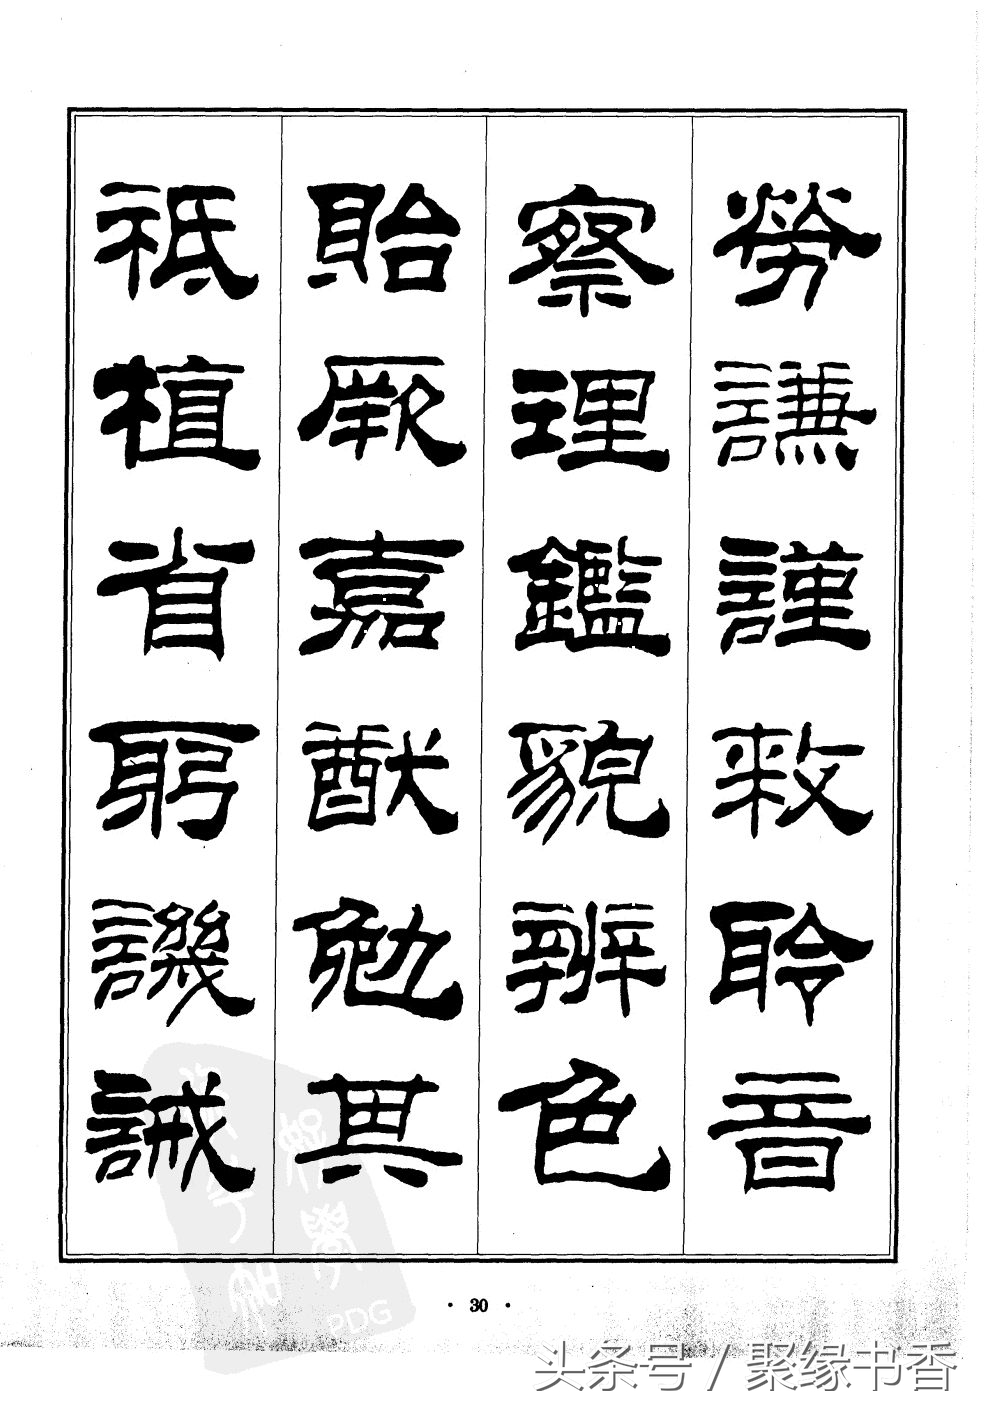 勞謙謹敕聆音
察理鑑貌辨色
貽厥嘉猷勉其
祗植省躬譏誡
·30·
PDG
头条号/聚缘书香